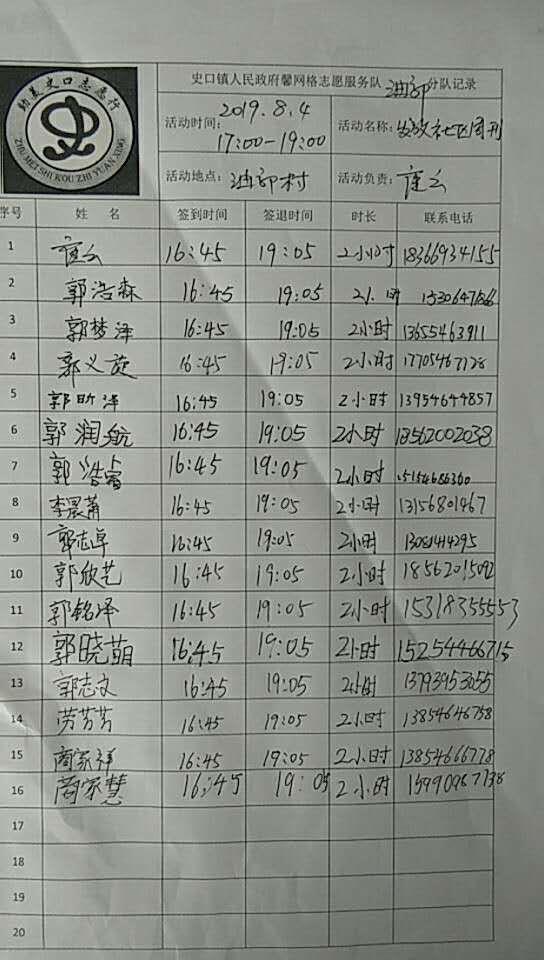 助美史口志愿行
ZHU MEI SHI KOU ZHI YUAN XING
史口镇人民政府馨网格志愿服务队 油郭 分队记录
活动时间: 2019.8.4 17:00-19:00 活动名称: 发放社区周刊
活动地点: 油郭村 活动负责: 崔云
序号 姓 名 签到时间 签退时间 时长 联系电话
1 崔云 16:45 19:05 2小时 18366934155
2 郭浩森 16:45 19:05 2小时
3 郭梦泽 16:45 19:05 2小时 13655463911
4 郭义旋 16:45 19:05 2小时 17705467128
5 郭昕泽 16:45 19:05 2小时 13954644857
6 郭润航 16:45 19:05 2小时 13562002038
7 郭浩睿 16:45 19:05 2小时
8 李晨菁 16:45 19:05 2小时 13156801967
9 郭志卓 16:45 19:05 2小时
10 郭欣艺 16:45 19:05 2小时 18562015092
11 郭铭泽 16:45 19:05 2小时 15318355553
12 郭晓萌 16:45 19:05 2小时 15254466715
13 郭志文 16:45 19:05 2小时 13793953055
14 劳芳芳 16:45 19:05 2小时 13854646758
15 商家祥 16:45 19:05 2小时 13854666778
16 商家慧 16:45 19:05 2小时
17
18
19
20